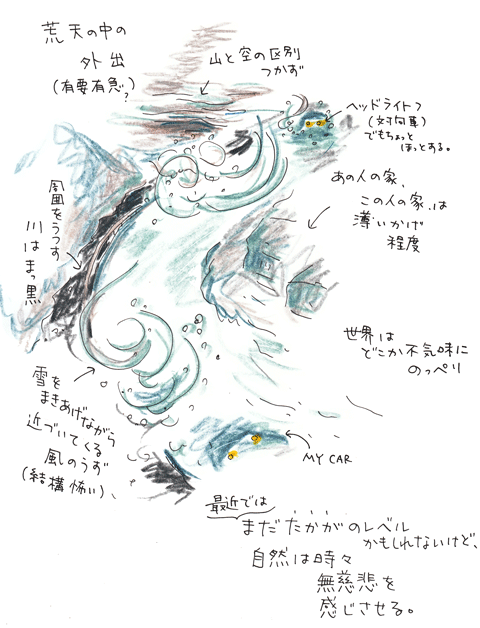 荒天の中の
外出
(有要有急?)
山と空の区別
つかず
ヘッドライト
(対向車)
でもちょっと
ほっとする。
あの人の家、
この人の家、は
薄いかげ
程度
周囲をうつす
川はまっ黒
世界は
どこか不気味に
のっぺり
雪を
まきあげながら
近づいてくる
風のうず
(結構怖い)、
MY CAR
最近では
まだたかがのレベル
かもしれないけど、
自然は時々
無慈悲を
感じさせる。